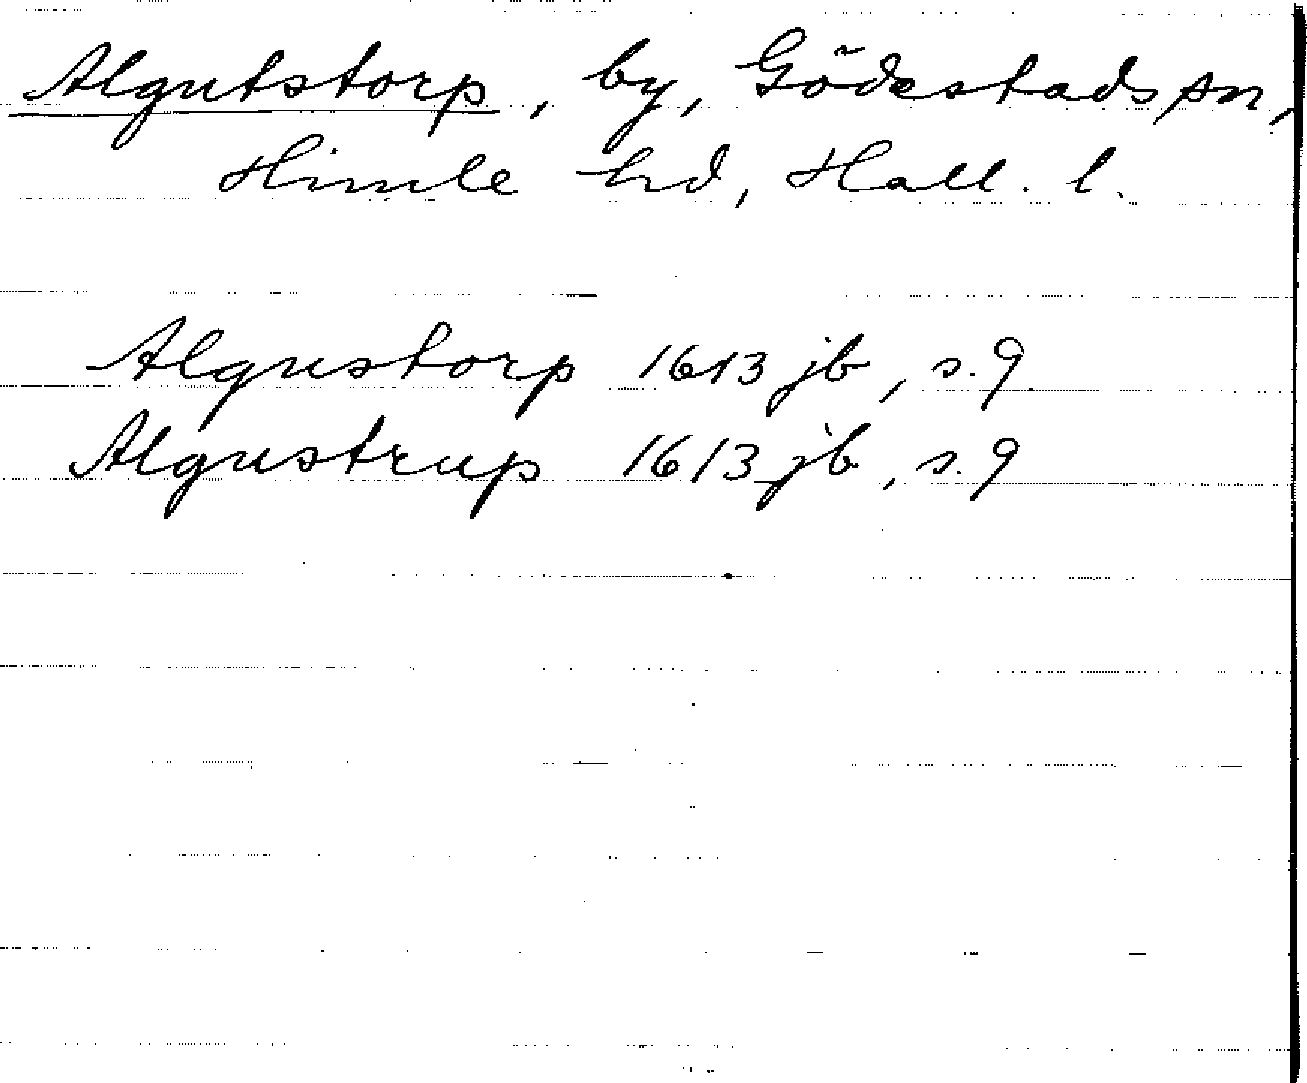 Algutstorp, by, Gödestads sn,
Himle hd, Hall. l.
Algustorp 1613 jb, s. 9
Algustrup 1613 jb, s. 9